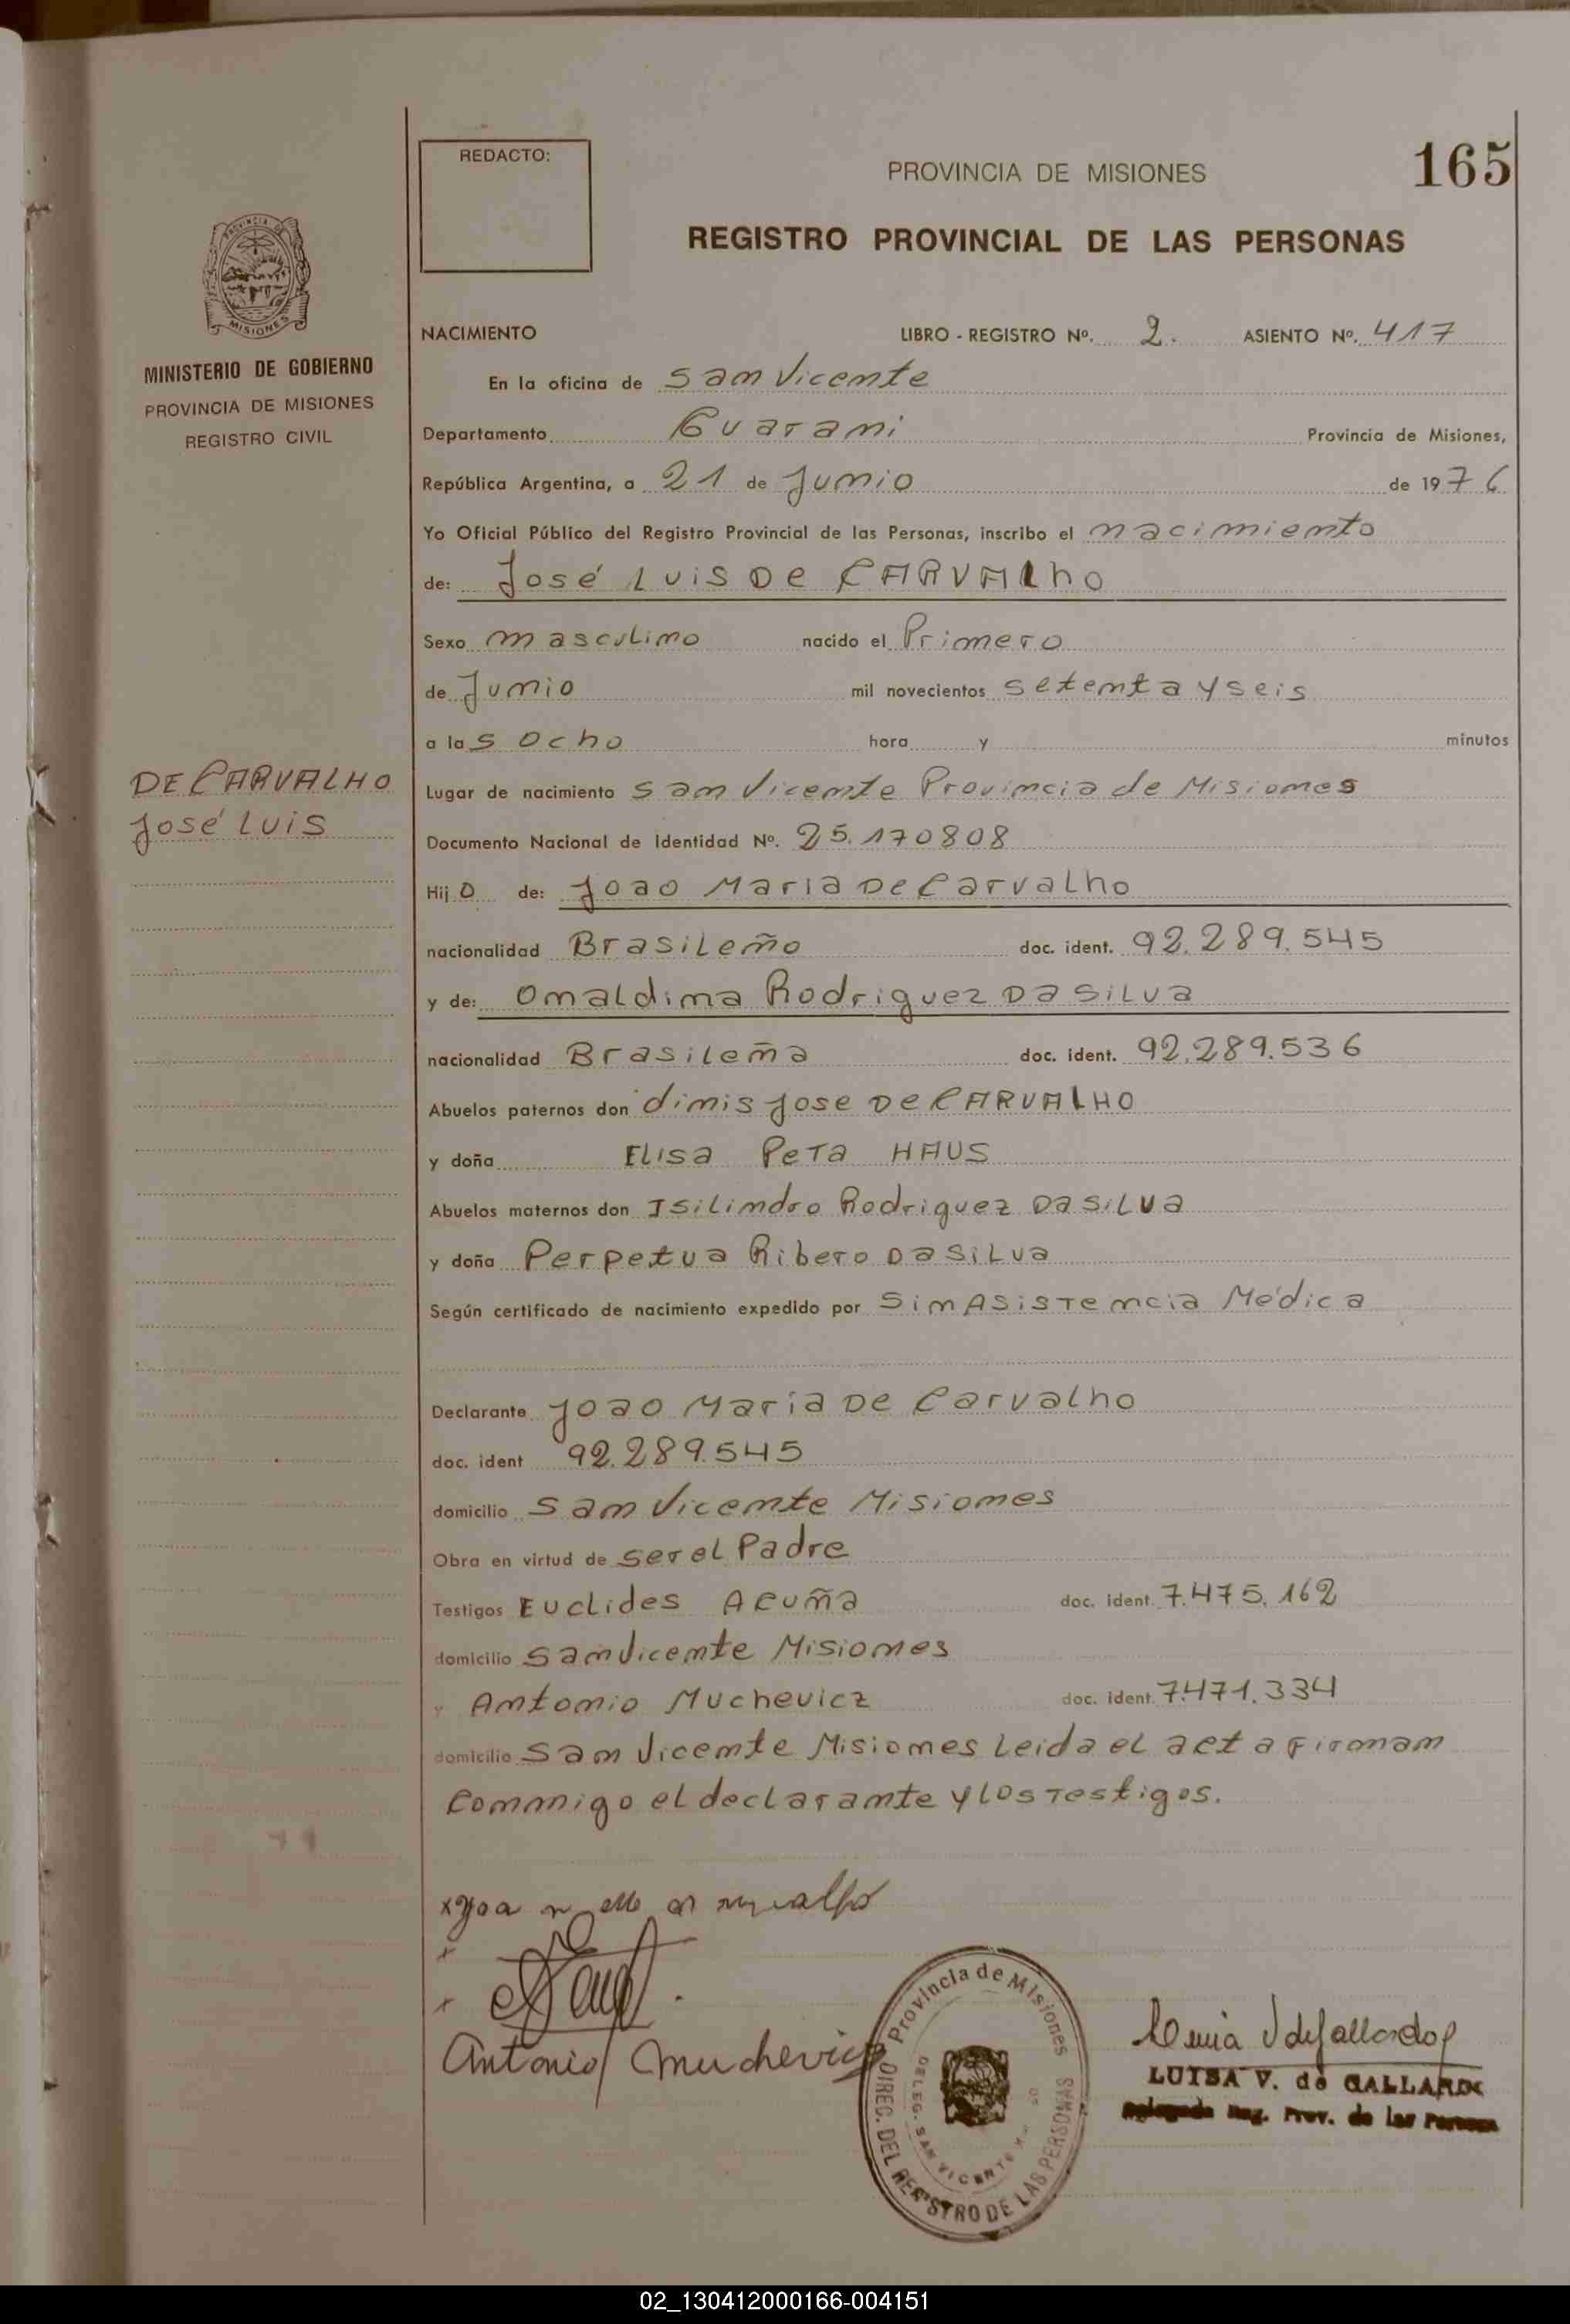 165
REDACTO:
PROVINCIA DE MISIONES
REGISTRO PROVINCIAL DE LAS PERSONAS
PROVINCIA DE
MISIONES
MINISTERIO DE GOBIERNO
PROVINCIA DE MISIONES
REGISTRO CIVIL
DE CARVALHO
José Luis
NACIMIENTO LIBRO - REGISTRO Nº. 2. ASIENTO Nº. 417
En la oficina de San Vicente
Departamento Guarani Provincia de Misiones,
República Argentina, a 21 de Junio de 1976
Yo Oficial Público del Registro Provincial de las Personas, inscribo el nacimiento
de: José Luis De CARVALho
Sexo masculino nacido el Primero
de Junio mil novecientos setenta y seis
a las Ocho hora y minutos
Lugar de nacimiento San Vicente Provincia de Misiones
Documento Nacional de Identidad Nº. 25.170808
Hijo de: Joao Maria De Carvalho
nacionalidad Brasileño doc. ident. 92.289.545
y de: Onaldina Rodriguez Da Silva
nacionalidad Brasileña doc. ident. 92.289.536
Abuelos paternos don dinis Jose De CARVALHO
y doña Elisa Peta HAUS
Abuelos maternos don Isilindro Rodriguez Da Silva
y doña Perpetua Ribero Da Silva
Según certificado de nacimiento expedido por Sin Asistencia Médica
Declarante Joao Maria De Carvalho
doc. ident 92.289.545
domicilio San Vicente Misiones
Obra en virtud de ser el Padre
Testigos Euclides Acuña doc. ident. 7.475.162
domicilio San Vicente Misiones
y Antonio Muchevicz doc. ident. 7.471.334
domicilio San Vicente Misiones Leida el acta Firman
Conmigo el declarante y los Testigos.
Antonio Muchevicz
Provincia de Misiones
DIREC. DEL REGISTRO DE LAS PERSONAS
DELEG. SAN VICENTE
LUISA V. de GALLARDO
Delegada Reg. Prov. de las Personas
02_130412000166-004151